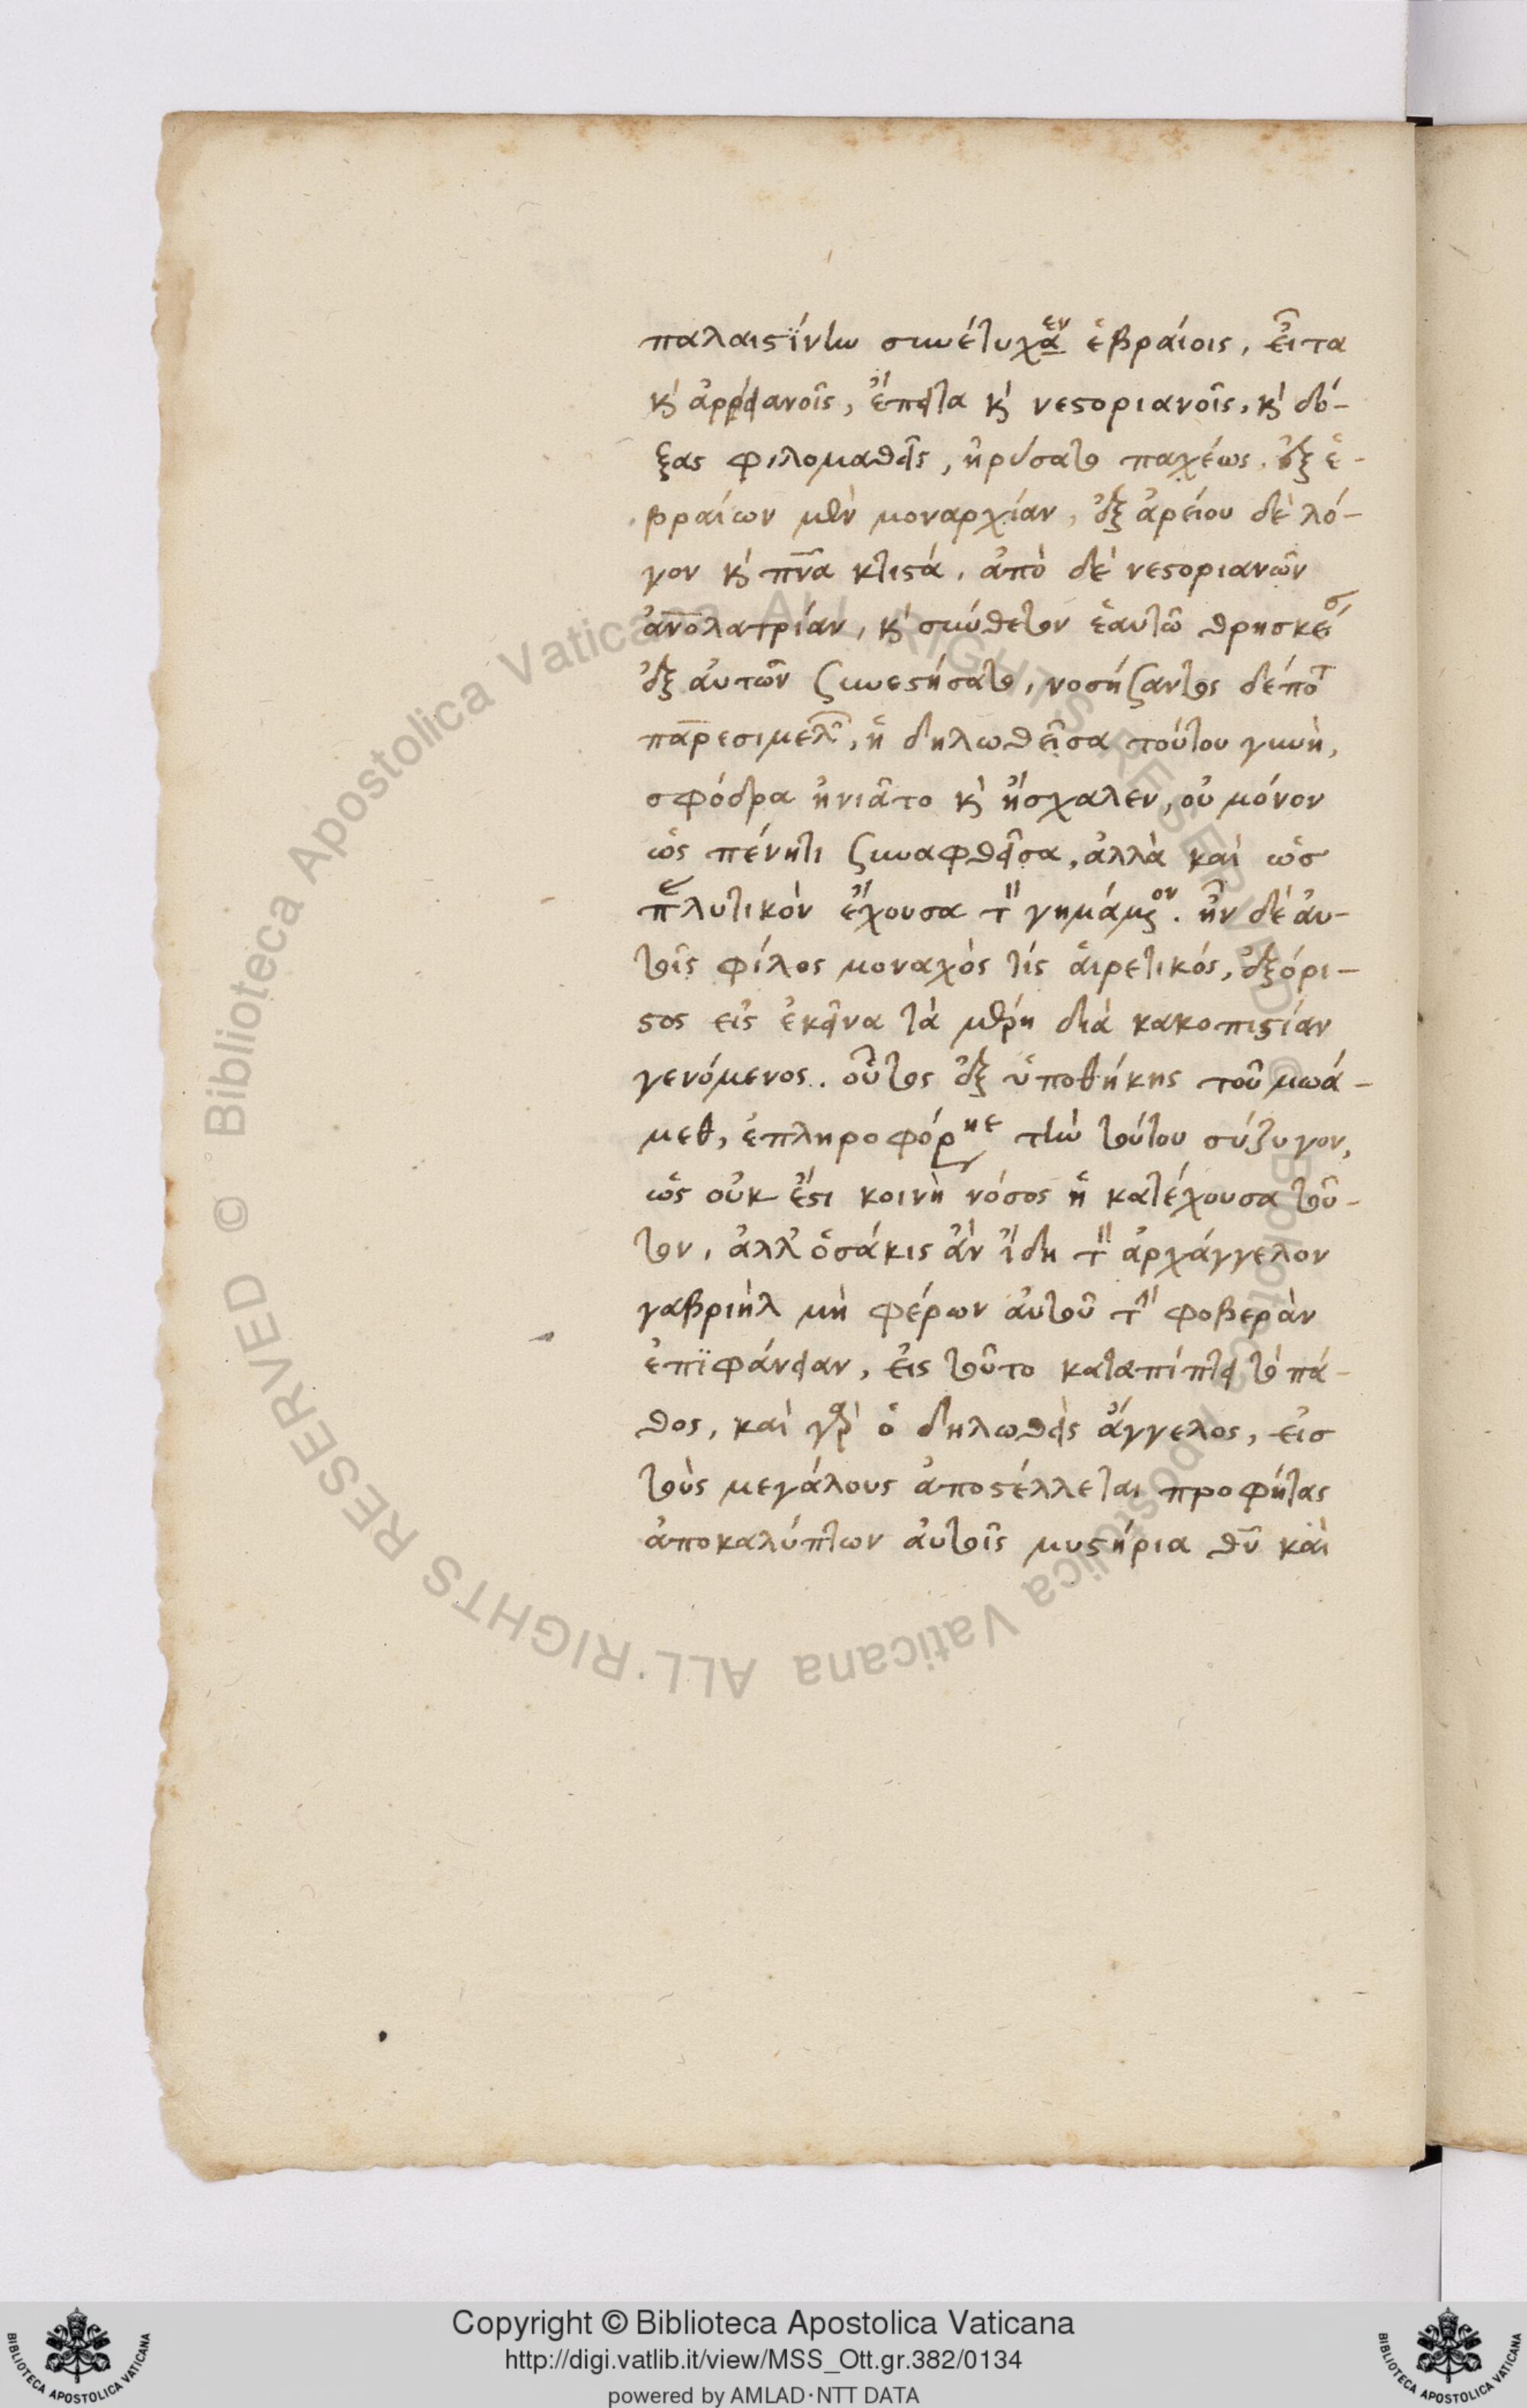 παλαιστίνην συνέτυχεν ἑβραίοις, εἶτα
κ ἀρρειανοῖς, ἔπειτα κ νεστοριανοῖς, κ δό-
ξας φιλομαθεῖς, ἠρύσατο παχέως. ἐξ ἑ-
βραίων μὲν μοναρχίαν, ἐξ ἀρείου δὲ λό-
γον κ πνα κτιστά. ἀπὸ δὲ νεστοριανῶν
ἀνολατρίαν, κ σύνθετον ἑαυτῶ θρησκεί
ἐξ αὐτῶν συνεστήσατο, νοσήσαντος δέποτ
παρεσιμελ, ἡ δηλωθεῖσα τούτου γυνὴ,
σφόδρα ἠνιᾶτο κ ἤσχαλεν, οὐ μόνον
ὡς πένητι συναφθεῖσα, ἀλλὰ καὶ ὡς
πλυτικὸν ἔχουσα τ γημάμενον. ἦν δὲ αὐ-
τοῖς φίλος μοναχὸς τίς αἱρετικός, ἐξόρι-
στος εἰς ἐκεῖνα τὰ μέρη διὰ κακοπιστίαν
γενόμενος. οὗτος ἐξ ὑποθήκης τοῦ μωά-
μεθ, ἐπληροφόρησε τὴν τούτου σύζυγον,
ὡς οὐκ ἔστι κοινὴ νόσος ἡ κατέχουσα τοῦ-
τον, ἀλλ' ὁσάκις ἂν ἴδη τ ἀρχάγγελον
γαβριὴλ μὴ φέρων αὐτοῦ τὴν φοβερὰν
ἐπϊφάνειαν, εἰς τοῦτο καταπίπτει τὸ πά-
θος, καὶ γὰρ ὁ δηλωθεὶς ἄγγελος, εἰς
τοὺς μεγάλους ἀποστέλλεται προφήτας
ἀποκαλύπτων αὐτοῖς μυστήρια θυ καὶ
Copyright © Biblioteca Apostolica Vaticana
http://digi.vatlib.it/view/MSS_Ott.gr.382/0134
powered by AMLAD·NTT DATA
BIBLIOTECA APOSTOLICA VATICANA
BIBLIOTECA APOSTOLICA VATICANA
Biblioteca Apostolica Vaticana ALL RIGHTS RESERVED ©
Biblioteca Apostolica Vaticana ALL RIGHTS RESERVED ©